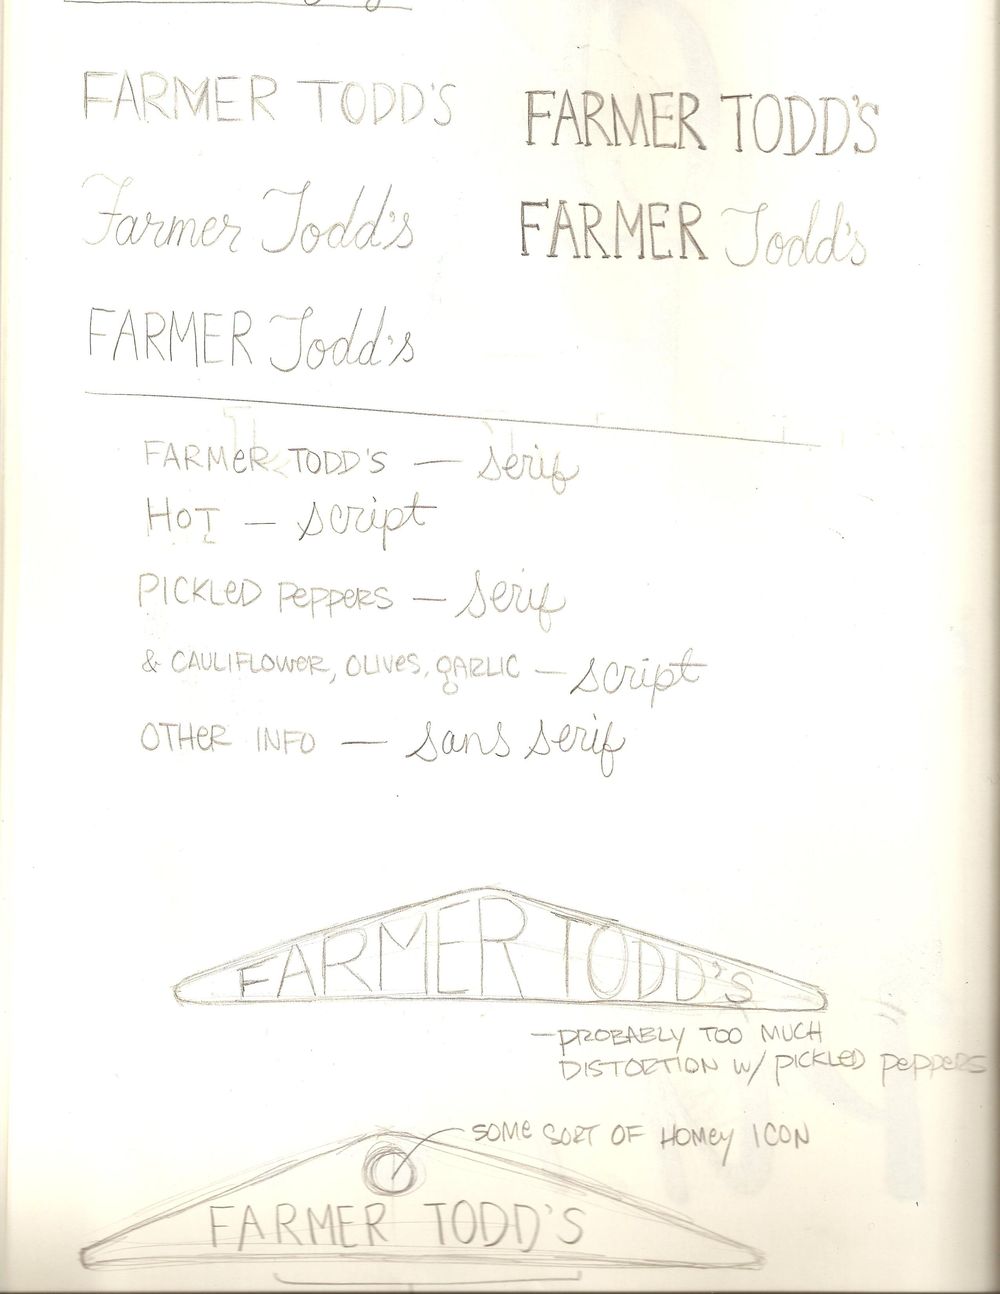 FARMER TODD'S
FARMER TODD'S
Farmer Todd's
FARMER Todd's
FARMER Todd's
FARMER TODD'S — serif
HOT — script
PICKLED PEPPERS — serif
& CAULIFLOWER, OLIVES, GARLIC — script
OTHER INFO — sans serif
FARMER TODD'S
—PROBABLY TOO MUCH
DISTORTION W/ PICKLED PEPPERS
SOME SORT OF HOMEY ICON
FARMER TODD'S